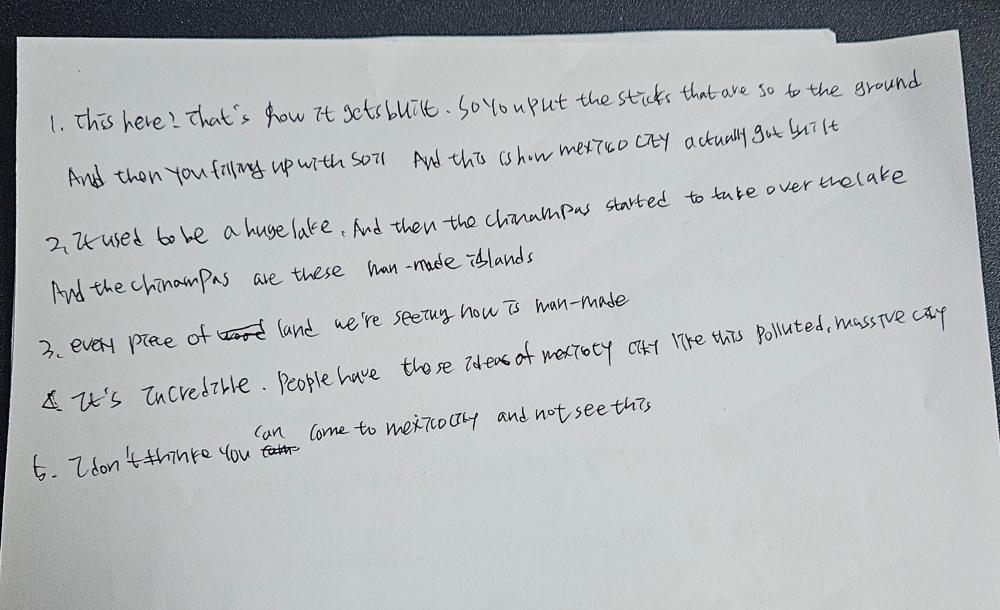 1. This here? That's how it gets built. So you put the sticks that are so to the ground
And then you filling up with soil And this is how mexico city actually got built
2. It used to be a huge lake. And then the chinampas started to take over the lake
And the chinampas are these man-made islands
3. every piece of land we're seeing now is man-made
4. It's incredible. People have those ideas of city like this polluted, massive city
5. I don't thinke you can come to mexico city and not see this